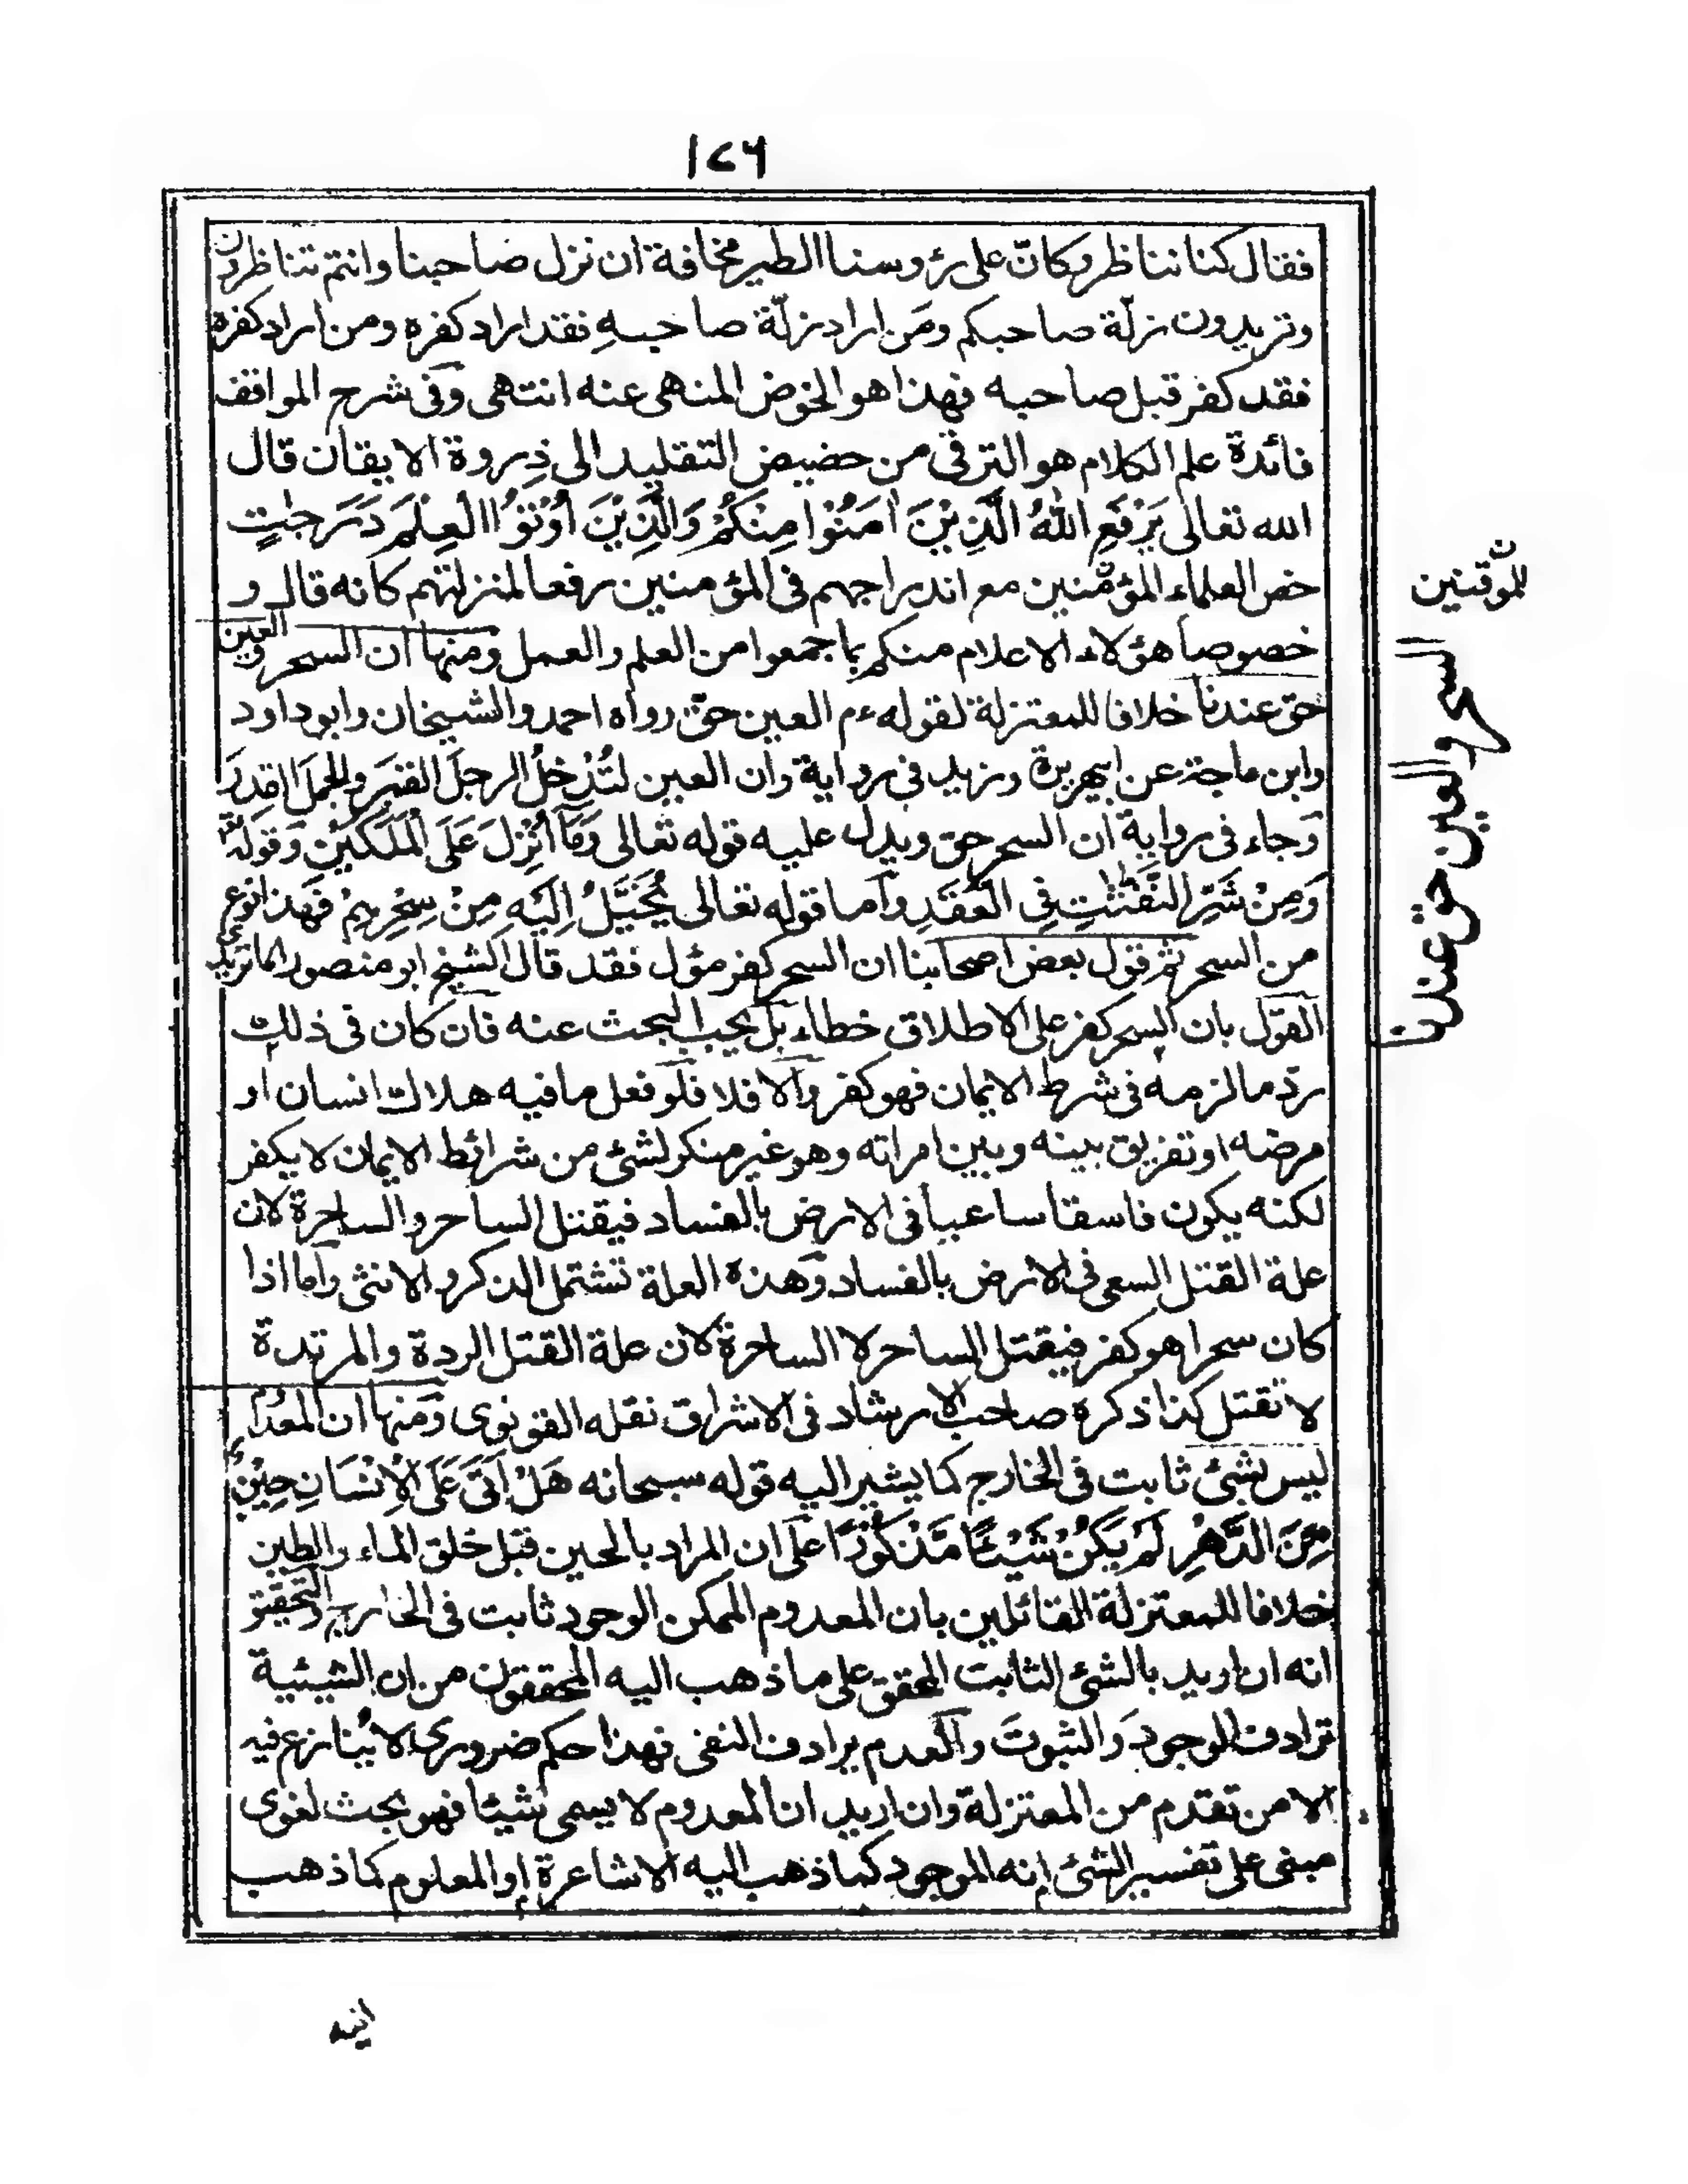 ١٤٦
فقال كنا نناظر وكانّ على رؤوسنا الطير مخافة ان نزل صاحبنا وانتم تناظرون
وتريدون زلّة صاحبكم ومَن اراد زلّة صاحبهِ فقد اراد كفره ومن اراد كفره
فقد كفر قبل صاحبه فهذا هو الخوض المنهى عنه انتهى وفى شرح المواقف
فائدة علم الكلام هو الترقى من حضيض التقليد الى ذِروة الايقان قال
الله تعالى يَرْفَعِ اللهُ الَّذِيْنَ اٰمَنُوْا مِنْكُمْ وَالَّذِيْنَ اُوْتُوا الْعِلْمَ دَرَجٰتٍ
خص العلماء المؤمنين مع اندراجهم فى المؤمنين رفعا لمنزلتهم كانه قال و
خصوصا هؤلاء الاعلام منكم بما جمعوا من العلم والعمل ومنها ان السحر والعين
حق عندنا خلافا للمعتزلة لقوله ءم العين حق رواه احمد والشيخان وابوداود
وابن ماجة عن ابيهريرة وزيد فى رواية وان العين لتُدْخلُ الرجلَ القبرَ والجملَ القِدرَ
وجاء فى رواية ان السحر حق ويدل عليه قوله تعالى وَمَآ اُنْزِلَ عَلَى الْمَلَكَيْنِ وَقوله
وَمِنْ شَرِّ النَّفّٰثٰتِ فِى الْعُقَدِ وآما قوله تعالى يُخَيَّلُ اِلَيْهِ مِنْ سِحْرِهِمْ فهذا نوع
من السحر ثم قول بعض اصحابنا ان السحر كفر مؤل فقد قال الشيخ ابو منصور الماتريدى
القول بان السحر كفر على الاطلاق خطاء بل يجب البحث عنه فان كان فى ذلك
ردّ ما لزمه فى شرط الايمان فهو كفر والا فلا فلو فعل ما فيه هلاك انسان او
مرضه او تفريق بينه وبين امراته وهو غير منكر لشئ من شرائط الايمان لا يكفر
لكنه يكون فاسقا ساعيا فى الارض بالفساد فيقتل الساحر والساحرة لان
علة القتل السعى فى الارض بالفساد وهذه العلة تشتمل الذكر والانثى واما اذا
كان سحرا هو كفر فيقتل الساحر لا الساحرة لان علة القتل الردة والمرتدة
لا تقتل كذا ذكره صاحب الارشاد فى الاشراق نقله القونوى ومنها ان المعدوم
ليس بشئ ثابت فى الخارج كما يشير اليه قوله سبحانه هَلْ اَتٰى عَلَى الْاِنْسَانِ حِيْنٌ
مِّنَ الدَّهْرِ لَمْ يَكُنْ شَيْئًا مَّذْكُوْرًا على ان المراد بالحين قبل خلق الماء والطين
خلافا للمعتزلة القائلين بان المعدوم الممكن الوجود ثابت فى الخارج والتحقيق
انه ان اريد بالشئ الثابت المحقق على ما ذهب اليه المحققون من ان الشيئية
ترادف الوجودَ والثبوتَ والعدم يرادف النفى فهذا حكم ضرورى لا يُنازع فيه
الا من تقدم من المعتزلة وان اريد ان المعدوم لا يسمى شيئا فهو بحث لغوى
مبنى على تفسير الشئ انه الموجود كما ذهب اليه الاشاعرة او المعلوم كما ذهب
للموقنين ن
السحر والعين حق عندنا
اليه